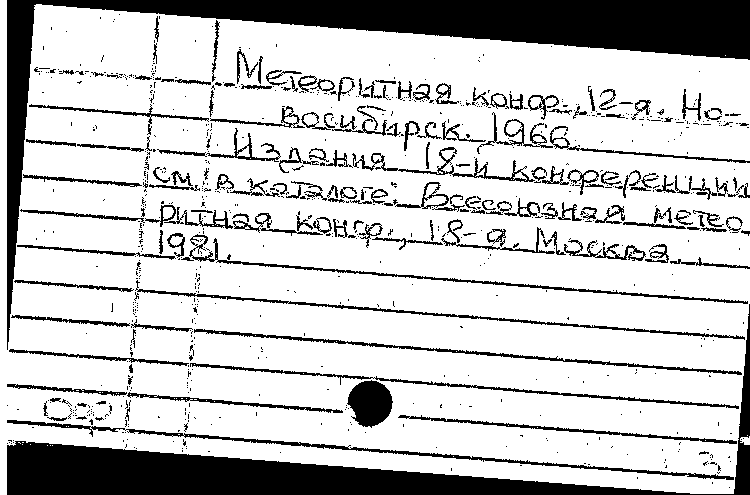 Метеоритная конф., 12-я. Но-
восибирск. 1966.
Издания 18-й конференции
см. в каталоге: Всесоюзная метео
ритная конф., 18-я. Москва.
1981.
3